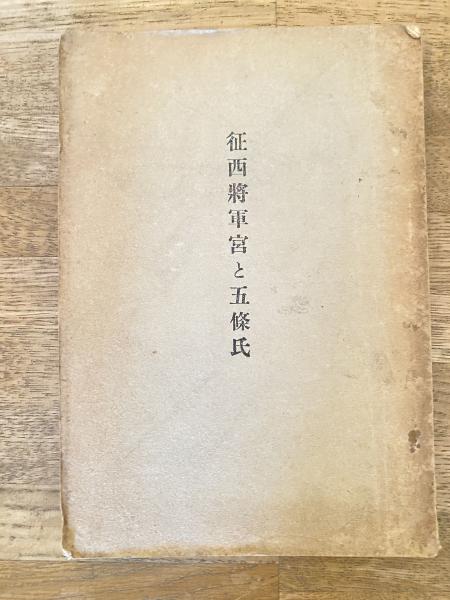 征西將軍宮と五條氏